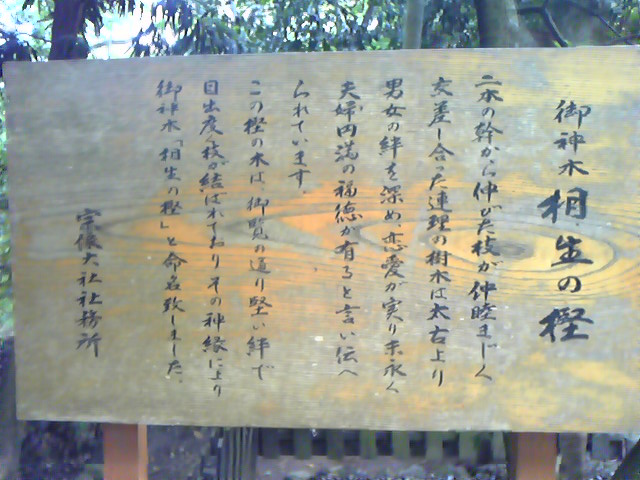 御神木 相生の樫
二本の幹から伸びた枝が仲睦まじく
交差し合った連理の樹木は太古より
男女の絆を深め、恋愛が実り末永く
夫婦円満の福徳が有ると言い伝へ
られています
この樫の木は、御覧の通り堅い絆で
目出度く枝が結ばれておりその神縁により
御神木「相生の樫」と命名致しました。
宗像大社社務所